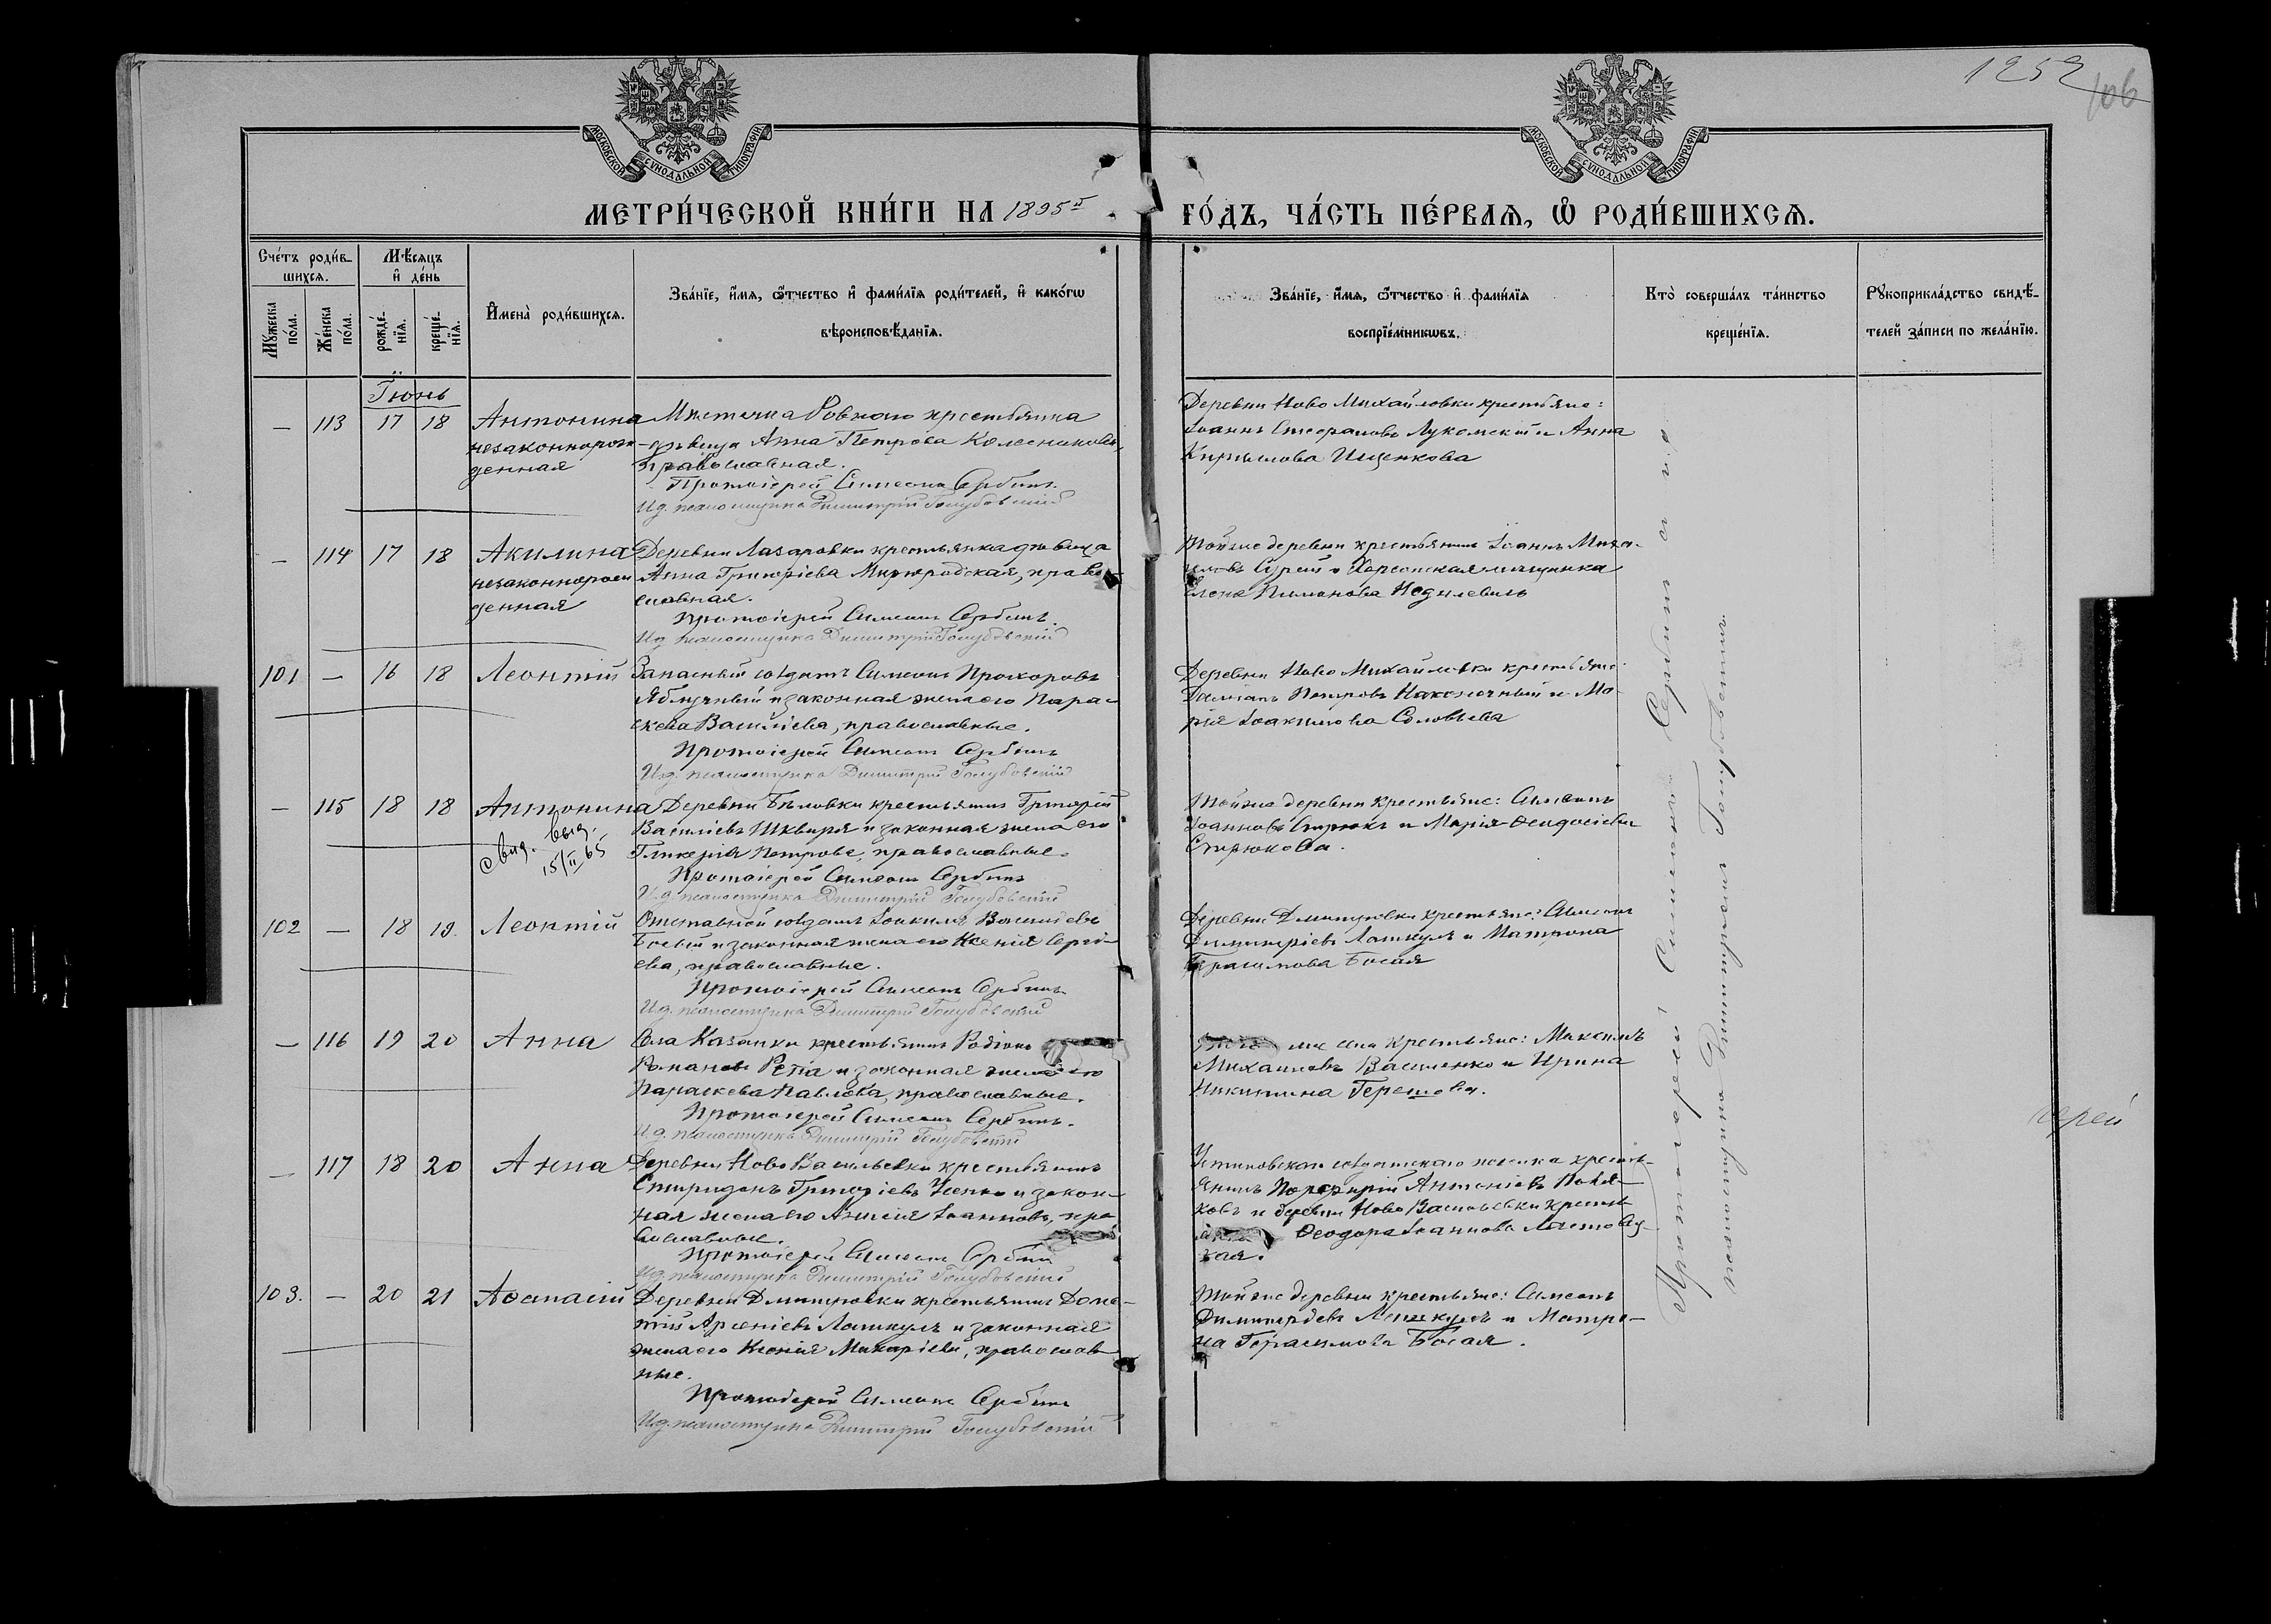 1252
106
МОСКОВСКОЙ СУНОДАЛЬНОЙ ТИПОГРАФІИ
МОСКОВСКОЙ СУНОДАЛЬНОЙ ТИПОГРАФІИ
МЕТРИ́ЧЕСКОЙ КНИ́ГИ НА 1895 ГО́ДЪ, ЧА́СТЬ ПЕ́РВАѦ, Ѽ РОДИ́ВШИХСѦ.
Сче́тъ роди́в-
шихсѧ.
Мꙋ́жеска по́ла.
Же́нска по́ла.
Мѣ́сѧцъ
и҆ де́нь
рожде́-
нїѧ.
креще́-
нїѧ.
И҆мена̀ роди́вшихсѧ.
Зва́нїе, и҆́мѧ, ѻ҆́тчество и҆ фами́лїѧ роди́телей, и҆ како́гѡ
вѣроисповѣ́данїѧ.
Зва́нїе, и҆́мѧ, ѻ҆́тчество и҆ фами́лїѧ
воспрїе́мникѡвъ.
Кто̀ соверша́лъ та́инство
креще́нїѧ.
Рꙋкоприкла́дство свидѣ́-
телей за́писи по жела́нїю.
Іюнь
— 113 17 18 Антонина
незаконнорож-
денная
Мѣстечка Ровного крестьянка
дѣвица Анна Петрова Колесникова,
православная.
Протоіерей Симеонъ Сербинъ
И.д. псаломщика Димитрій Голубовскій
Деревни Ново Михайловки крестьяне:
Іоаннъ Стефановъ Лукомскій и Анна
Кириллова Ищенкова
— 114 17 18 Акилина
незаконнорож
денная
Деревни Лазаровки крестьянка дѣвица
Анна Григоріева Миргородская, право-
славная.
Протоіерей Симеонъ Сербинъ.
И.д. псаломщика Димитрій Голубовскій
Той же деревни крестьянинъ Іоаннъ Миха-
иловъ и Херсонская мѣщанка
Елена
101 — 16 18 Леонтій
Запасный солдатъ Симеонъ Прохоровъ
Яблучный и законная жена его Пара-
скева Василіева, православные.
Протоіерей Симеонъ Сербинъ
И.д. псаломщика Димитрій Голубовскій
Деревни Ново Михайловки крестьяне:
Даміанъ Петровъ Наконечный и Ма-
рія Іоакимова Соловьева
— 115 18 18 Антонина
свид. выд.
15/II 65
Деревни Бѣловки крестьянинъ Григорій
Василіевъ Шквиря и законная жена его
Гликерія Петрова, православные.
Протоіерей Симеонъ Сербинъ
И.д. псаломщика Димитрій Голубовскій
Той же деревни крестьяне: Симеонъ
Іоанновъ Стрюкъ и Марія Ѳеодосіева
Стрюкова.
102 — 18 19. Леонтій
Отставной солдатъ Іоакимъ Василіевъ
Босый и законная жена его Ксенія Сергі-
ева, православные.
Протоіерей Симеонъ Сербинъ
И.д. псаломщика Димитрій Голубовскій
Деревни Дмитровки крестьяне: Симеонъ
Димитріевъ Лашкулъ и Матрона
Герасимова Босая
— 116 19 20 Анна
Села Казанки крестьянинъ Родіонъ
Романовъ Репа и законная жена его
Параскева Павлова, православные.
Протоіерей Симеонъ Сербинъ.
И.д. псаломщика Димитрій Голубовскій
же села крестьяне: Максимъ
Михаиловъ Василенко и Ирина
Никитина
— 117 18 20 Анна
Деревни Ново Васильевки крестьянинъ
Спиридонъ Григоріевъ Усенко и закон-
ная жена его Іоаннова, пра
вославные.
Протоіерей Симеонъ Сербинъ
И.д. псаломщика Димитрій Голубовскій
солдатскаго поселка кресть-
янинъ Порфирій Антоніевъ Поля-
ковъ и деревни Ново Васильевки кресть
Ѳеодора Іоаннова
кая.
103. — 20 21 Аѳанасій
Деревни Дмитровки крестьянинъ Доме-
тій Арсеніевъ Лашкулъ и законная
жена его Ксенія Макаріева, православ
ные.
Протоіерей Симеонъ Сербинъ
И.д. псаломщика Димитрій Голубовскій
Той же деревни крестьяне: Симеонъ
Димитріевъ Лашкулъ и Матро-
на Герасимова Босая.
Протоіерей Симеонъ Сербинъ и и.д.
псаломщика Димитрій Голубовскій
іерей